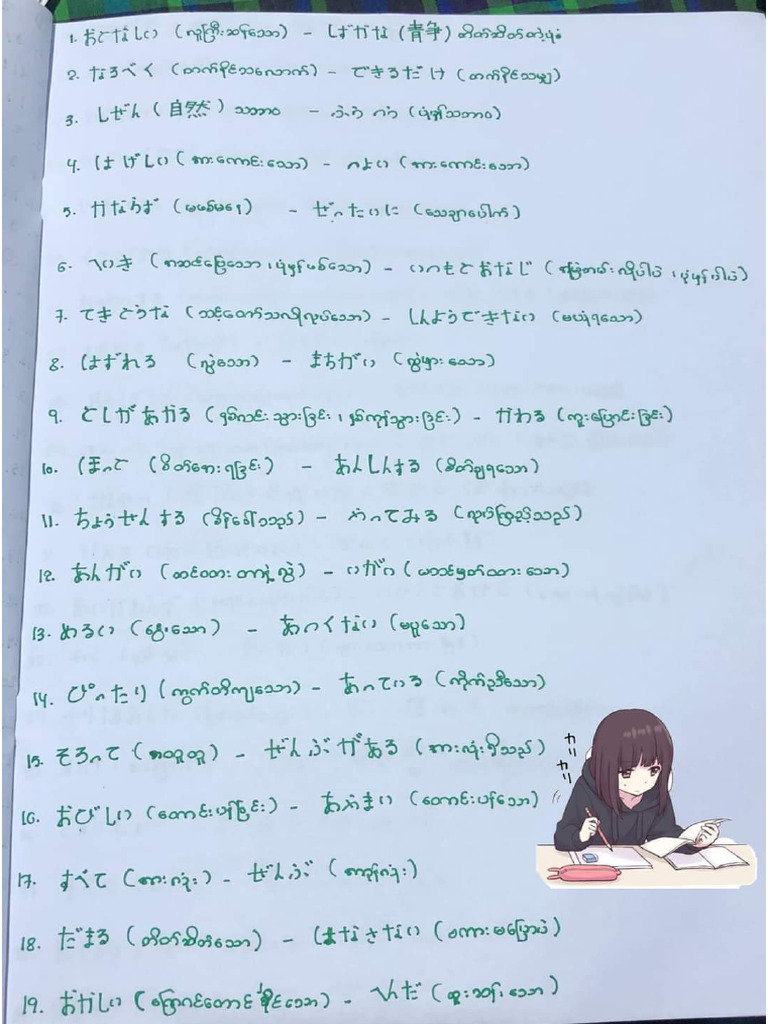 1. おとなしい (လူကြီးဆန်သော) - しずかな (青争) တိတ်ဆိတ်တဲ့
2. なるべく (တတ်နိုင်သလောက်) - できるだけ (တတ်နိုင်သမျှ)
3. しぜん (自然) သဘာဝ - ふつう (ပုံမှန်သဘာဝ)
4. はげしい (အားကောင်းသော) - つよい (အားကောင်းသော)
5. かならず (မဖြစ်မနေ) - ぜったいに (သေချာပေါက်)
6. へいき (အဆင်ပြေသော ၊ ပုံမှန်ဖြစ်သော) - いつもとおなじ (အမြဲတမ်းလိုပါပဲ ၊ ပုံမှန်ပါပဲ)
7. てきとうな (သင့်တော်သလိုလုပ်သော) - しんようできない (မယုံရသော)
8. はずれる (လွဲသော) - まちがい (လွဲမှားသော)
9. としがあかる (နှစ်ကူးသွားခြင်း ၊ နှစ်ကုန်သွားခြင်း) - かわる (ကူးပြောင်းခြင်း)
10. ほっと (စိတ်အေးရခြင်း) - あんしんする (စိတ်ချရသော)
11. ちょうせんする (စိန်ခေါ်သည်) - やってみる (လုပ်ကြည့်သည်)
12. あんがい (ထင်ထားတာနဲ့လွဲ) - いがい (မထင်မှတ်ထားသော)
13. ぬるい (နွေးသော) - あつくない (မပူသော)
14. ぴったり (ကွက်တိကျသော) - あっている (ကိုက်ညီသော)
15. そろって (အတူတူ) - ぜんぶがある (အားလုံးရှိသည်)
16. おびしい (တောင်းပန်ခြင်း) - あやまい (တောင်းပန်သော)
17. すべて (အားလုံး) - ぜんぶ (အကုန်လုံး)
18. だまる (တိတ်ဆိတ်သော) - はなさない (စကားမပြောပဲ)
19. おかしい (ကြောင်တောင်နိုင်သော) - へんだ (ထူးဆန်းသော)
カリ
カリ